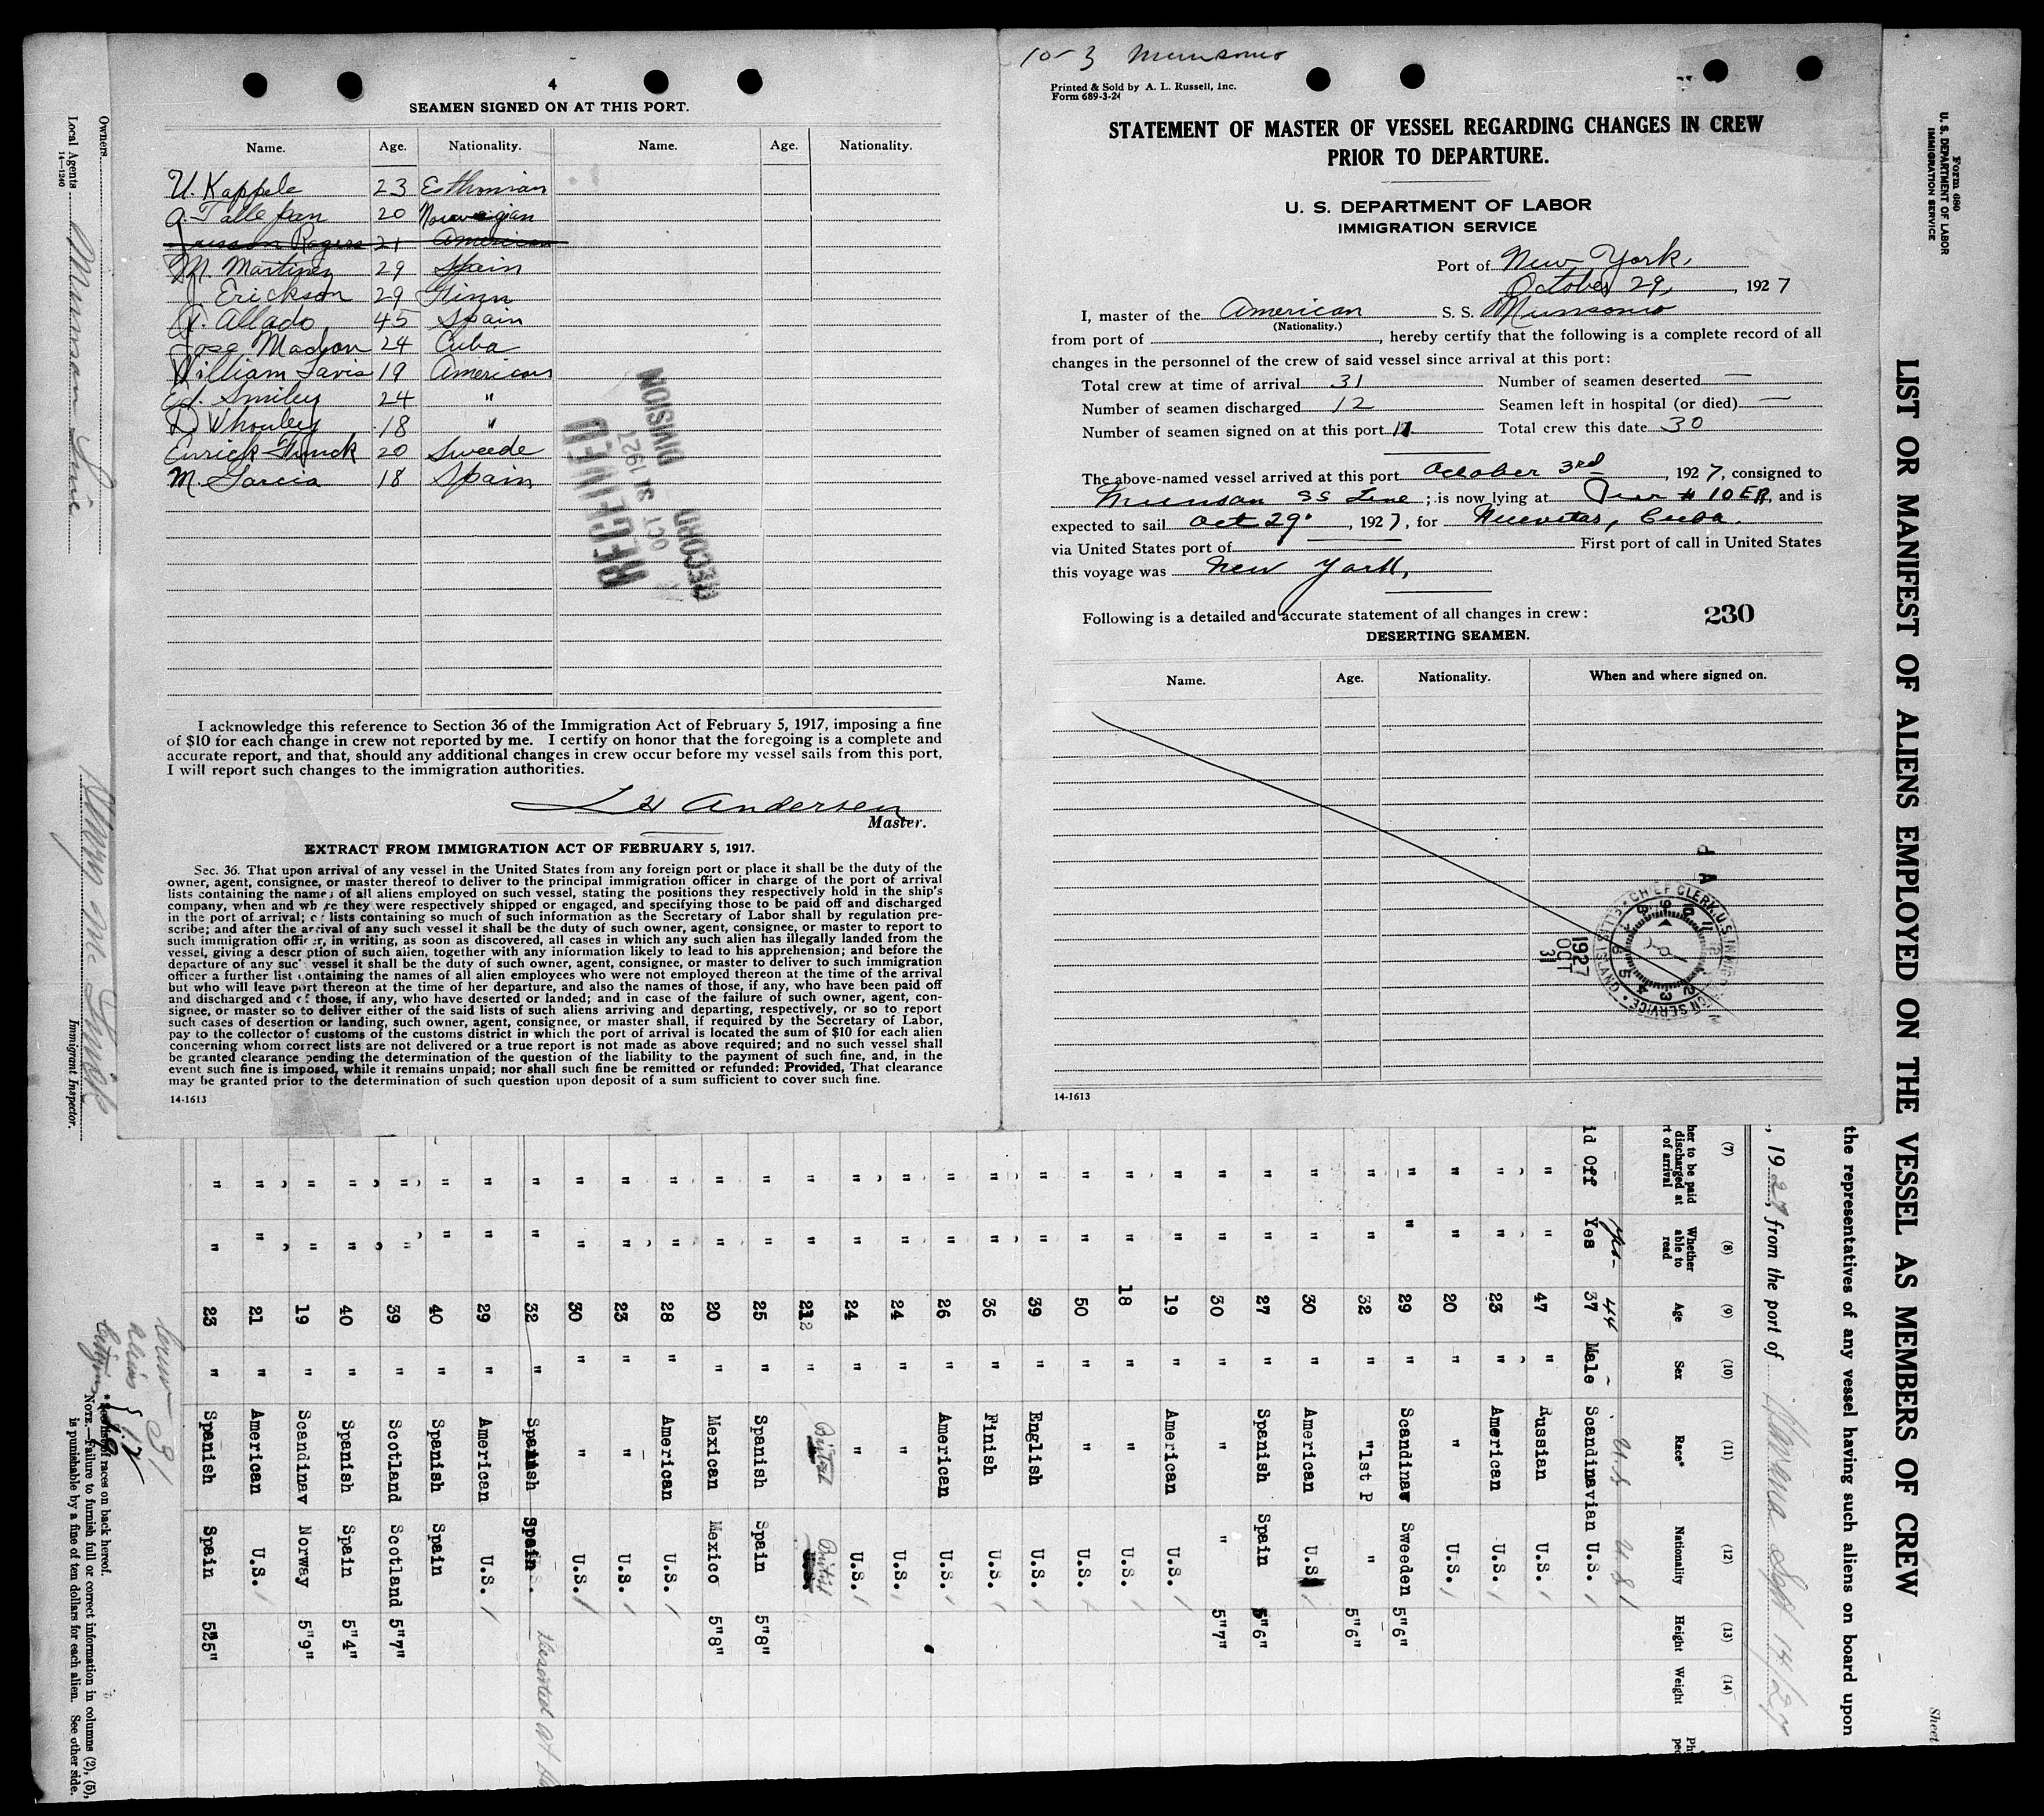 4
SEAMEN SIGNED ON AT THIS PORT.
Name. Age. Nationality. Name. Age. Nationality.
U. Kappele 23 Esthonian
20 Norwegian
Rogers 21 American
M. Martinez 29 Spain
J Erickson 29 Finn
Allado 45 Spain
Jose 24 Cuba
William Davis 19 American
Ed. Smiley 24 "
D Whorley 18 "
20 Sweede
M. Garcia 18 Spain
RECEIVED
OCT 31 1927
RECORD DIVISION
I acknowledge this reference to Section 36 of the Immigration Act of February 5, 1917, imposing a fine
of $10 for each change in crew not reported by me. I certify on honor that the foregoing is a complete and
accurate report, and that, should any additional changes in crew occur before my vessel sails from this port,
I will report such changes to the immigration authorities.
Andersen
Master.
EXTRACT FROM IMMIGRATION ACT OF FEBRUARY 5, 1917.
Sec. 36. That upon arrival of any vessel in the United States from any foreign port or place it shall be the duty of the
owner, agent, consignee, or master thereof to deliver to the principal immigration officer in charge of the port of arrival
lists containing the names of all aliens employed on such vessel, stating the positions they respectively hold in the ship's
company, when and where they were respectively shipped or engaged, and specifying those to be paid off and discharged
in the port of arrival; or lists containing so much of such information as the Secretary of Labor shall by regulation pre-
scribe; and after the arrival of any such vessel it shall be the duty of such owner, agent, consignee, or master to report to
such immigration officer, in writing, as soon as discovered, all cases in which any such alien has illegally landed from the
vessel, giving a description of such alien, together with any information likely to lead to his apprehension; and before the
departure of any such vessel it shall be the duty of such owner, agent, consignee, or master to deliver to such immigration
officer a further list containing the names of all alien employees who were not employed thereon at the time of the arrival
but who will leave port thereon at the time of her departure, and also the names of those, if any, who have been paid off
and discharged and of those, if any, who have deserted or landed; and in case of the failure of such owner, agent, con-
signee, or master so to deliver either of the said lists of such aliens arriving and departing, respectively, or so to report
such cases of desertion or landing, such owner, agent, consignee, or master shall, if required by the Secretary of Labor,
pay to the collector of customs of the customs district in which the port of arrival is located the sum of $10 for each alien
concerning whom correct lists are not delivered or a true report is not made as above required; and no such vessel shall
be granted clearance pending the determination of the question of the liability to the payment of such fine, and, in the
event such fine is imposed, while it remains unpaid; nor shall such fine be remitted or refunded: Provided, That clearance
may be granted prior to the determination of such question upon deposit of a sum sufficient to cover such fine.
14-1613
10-3 Munsomo
Printed & Sold by A. L. Russell, Inc.
Form 689-3-24
STATEMENT OF MASTER OF VESSEL REGARDING CHANGES IN CREW
PRIOR TO DEPARTURE.
U. S. DEPARTMENT OF LABOR
IMMIGRATION SERVICE
Port of New York,
October 29, 1927
I, master of the American S. S. Munsomo
(Nationality.)
from port of , hereby certify that the following is a complete record of all
changes in the personnel of the crew of said vessel since arrival at this port:
Total crew at time of arrival 31 Number of seamen deserted —
Number of seamen discharged 12 Seamen left in hospital (or died) —
Number of seamen signed on at this port 11 Total crew this date 30
The above-named vessel arrived at this port October 3rd, 1927, consigned to
Munson SS Line ; is now lying at Pier # 10 ER, and is
expected to sail Oct 29, 1927, for Nuevitas, Cuba.
via United States port of First port of call in United States
this voyage was New York,
Following is a detailed and accurate statement of all changes in crew: 230
DESERTING SEAMEN.
Name. Age. Nationality. When and where signed on.
CHIEF CLERK, U.S. IMMIGRATION SERVICE • ELLIS ISLAND
1927 OCT 31
14-1613
Form 680
U. S. DEPARTMENT OF LABOR
IMMIGRATION SERVICE
Sheet
LIST OR MANIFEST OF ALIENS EMPLOYED ON THE VESSEL AS MEMBERS OF CREW
the representatives of any vessel having such aliens on board upon
, 1927, from the port of Havana Sept 14/27
(7) (8) (9) (10) (11) (12) (13) (14)
her to be paid discharged at rt of arrival Whether able to read Age Sex Race* Nationality Height Weight
– yes – 44 – U.S U.S 1
id Off Yes 37 Male Scandinavian U.S.
" " 47 " Russian U.S.
" " 23 " American U.S.
" " 20 " " U.S.
" " 29 " Scandinav Sweden 5"6"
" " 32 " "1st P " 5"6"
" " 30 " American U.S.
" " 27 " Spanish Spain 5"6"
" " 30 " " " 5"7"
" " 19 " American U.S.
" " 18 " " U.S.
" " 50 " " U.S.
" " 39 " English U.S.
" " 36 " Finish U.S.
" " 26 " American U.S.
" " 24 " " U.S.
" " 24 " " U.S.
" " 212 " British British
" " 25 " Spanish Spain 5"8"
" " 20 " Mexican Mexico 5"8"
" " 28 " American U.S.
" " 23 " " U.S.
" " 30 " " U.S.
" " 32 " Spanish Spain. Deserted at
" " 29 " American U.S.
" " 40 " Spanish Spain
" " 39 " Scotland Scotland 5"7"
" " 40 " Spanish Spain 5"4"
" " 19 " Scandinav Norway 5"9"
" " 21 " American U.S.
" " 23 " Spanish Spain 525"
Crew 31
Aliens 12
Citizens 19
* See list of races on back hereof.
NOTE.—Failure to furnish full or correct information in columns (2), (5),
is punishable by a fine of ten dollars for each alien. See other side.
Owners
Local Agents Munson Line
14—1240
Immigrant Inspector.